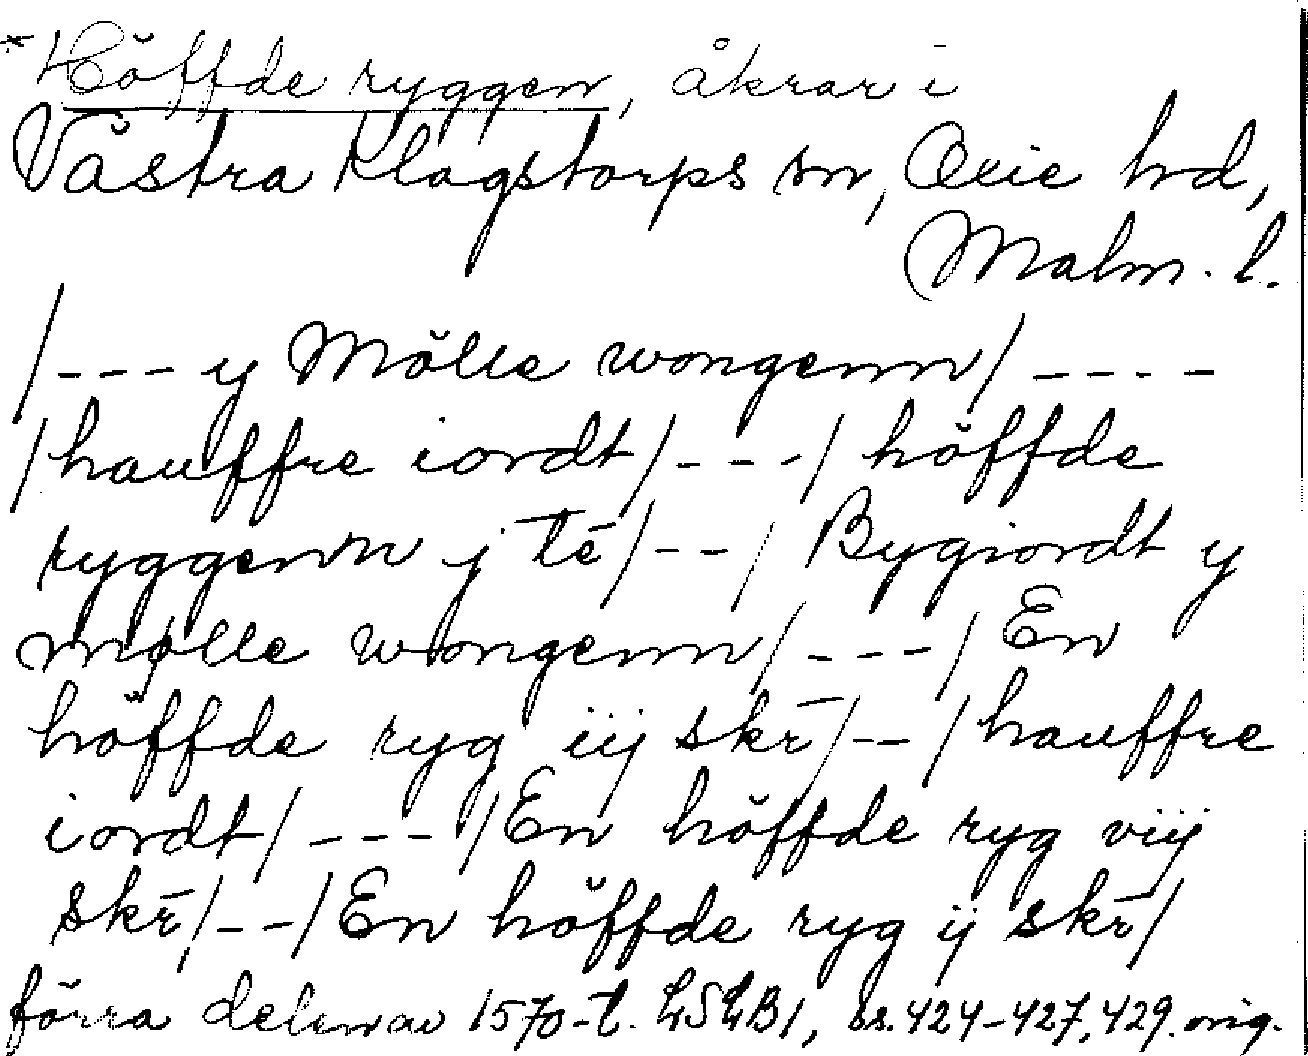 *Höffde ryggen, åkrar i
Västra Klagstorps sn, Oxie hd,
Malm. l.
/--- y Mölle wongenn/ ----
/hauffre iordt/---/ höffde
ryggenn j tē/--/ Bygiordt y
mølle wongenn/---/ En
höffde ryg iij skr̄/--/hauffre
iordt/---/En höffde ryg viij
skr̄/--/En höffde ryg ij skr̄/
förra delen av 1570-t. LSLB1, ss. 424-427, 429. orig.